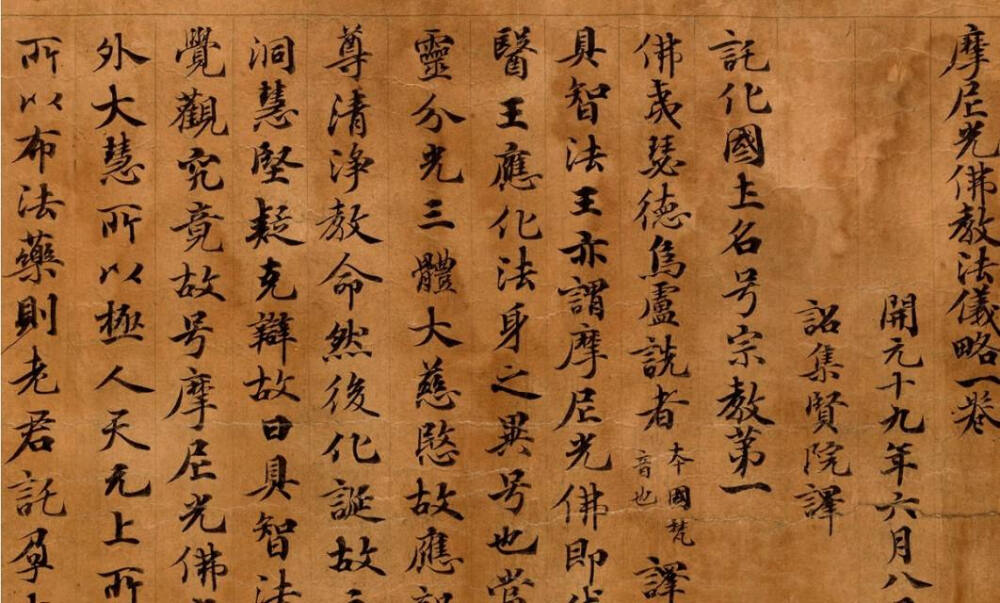 摩尼光佛教法儀略一卷
開元十九年六月八
詔集賢院譯
託化國土名号宗教第一
佛夷瑟德烏盧詵者 本國梵音也 譯
具智法王亦謂摩尼光佛即
醫王應化法身之異号也當
靈分光三體大慈愍故應
尊清淨教命然後化誕故
洞慧堅疑克辯故曰具智法
覺觀究竟故号摩尼光佛
外大慧所以極人天无上所
所以布法藥則老君託孕